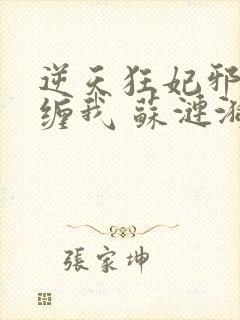 逆天狂妃邪
缠我 蘇漣漪
張家坤